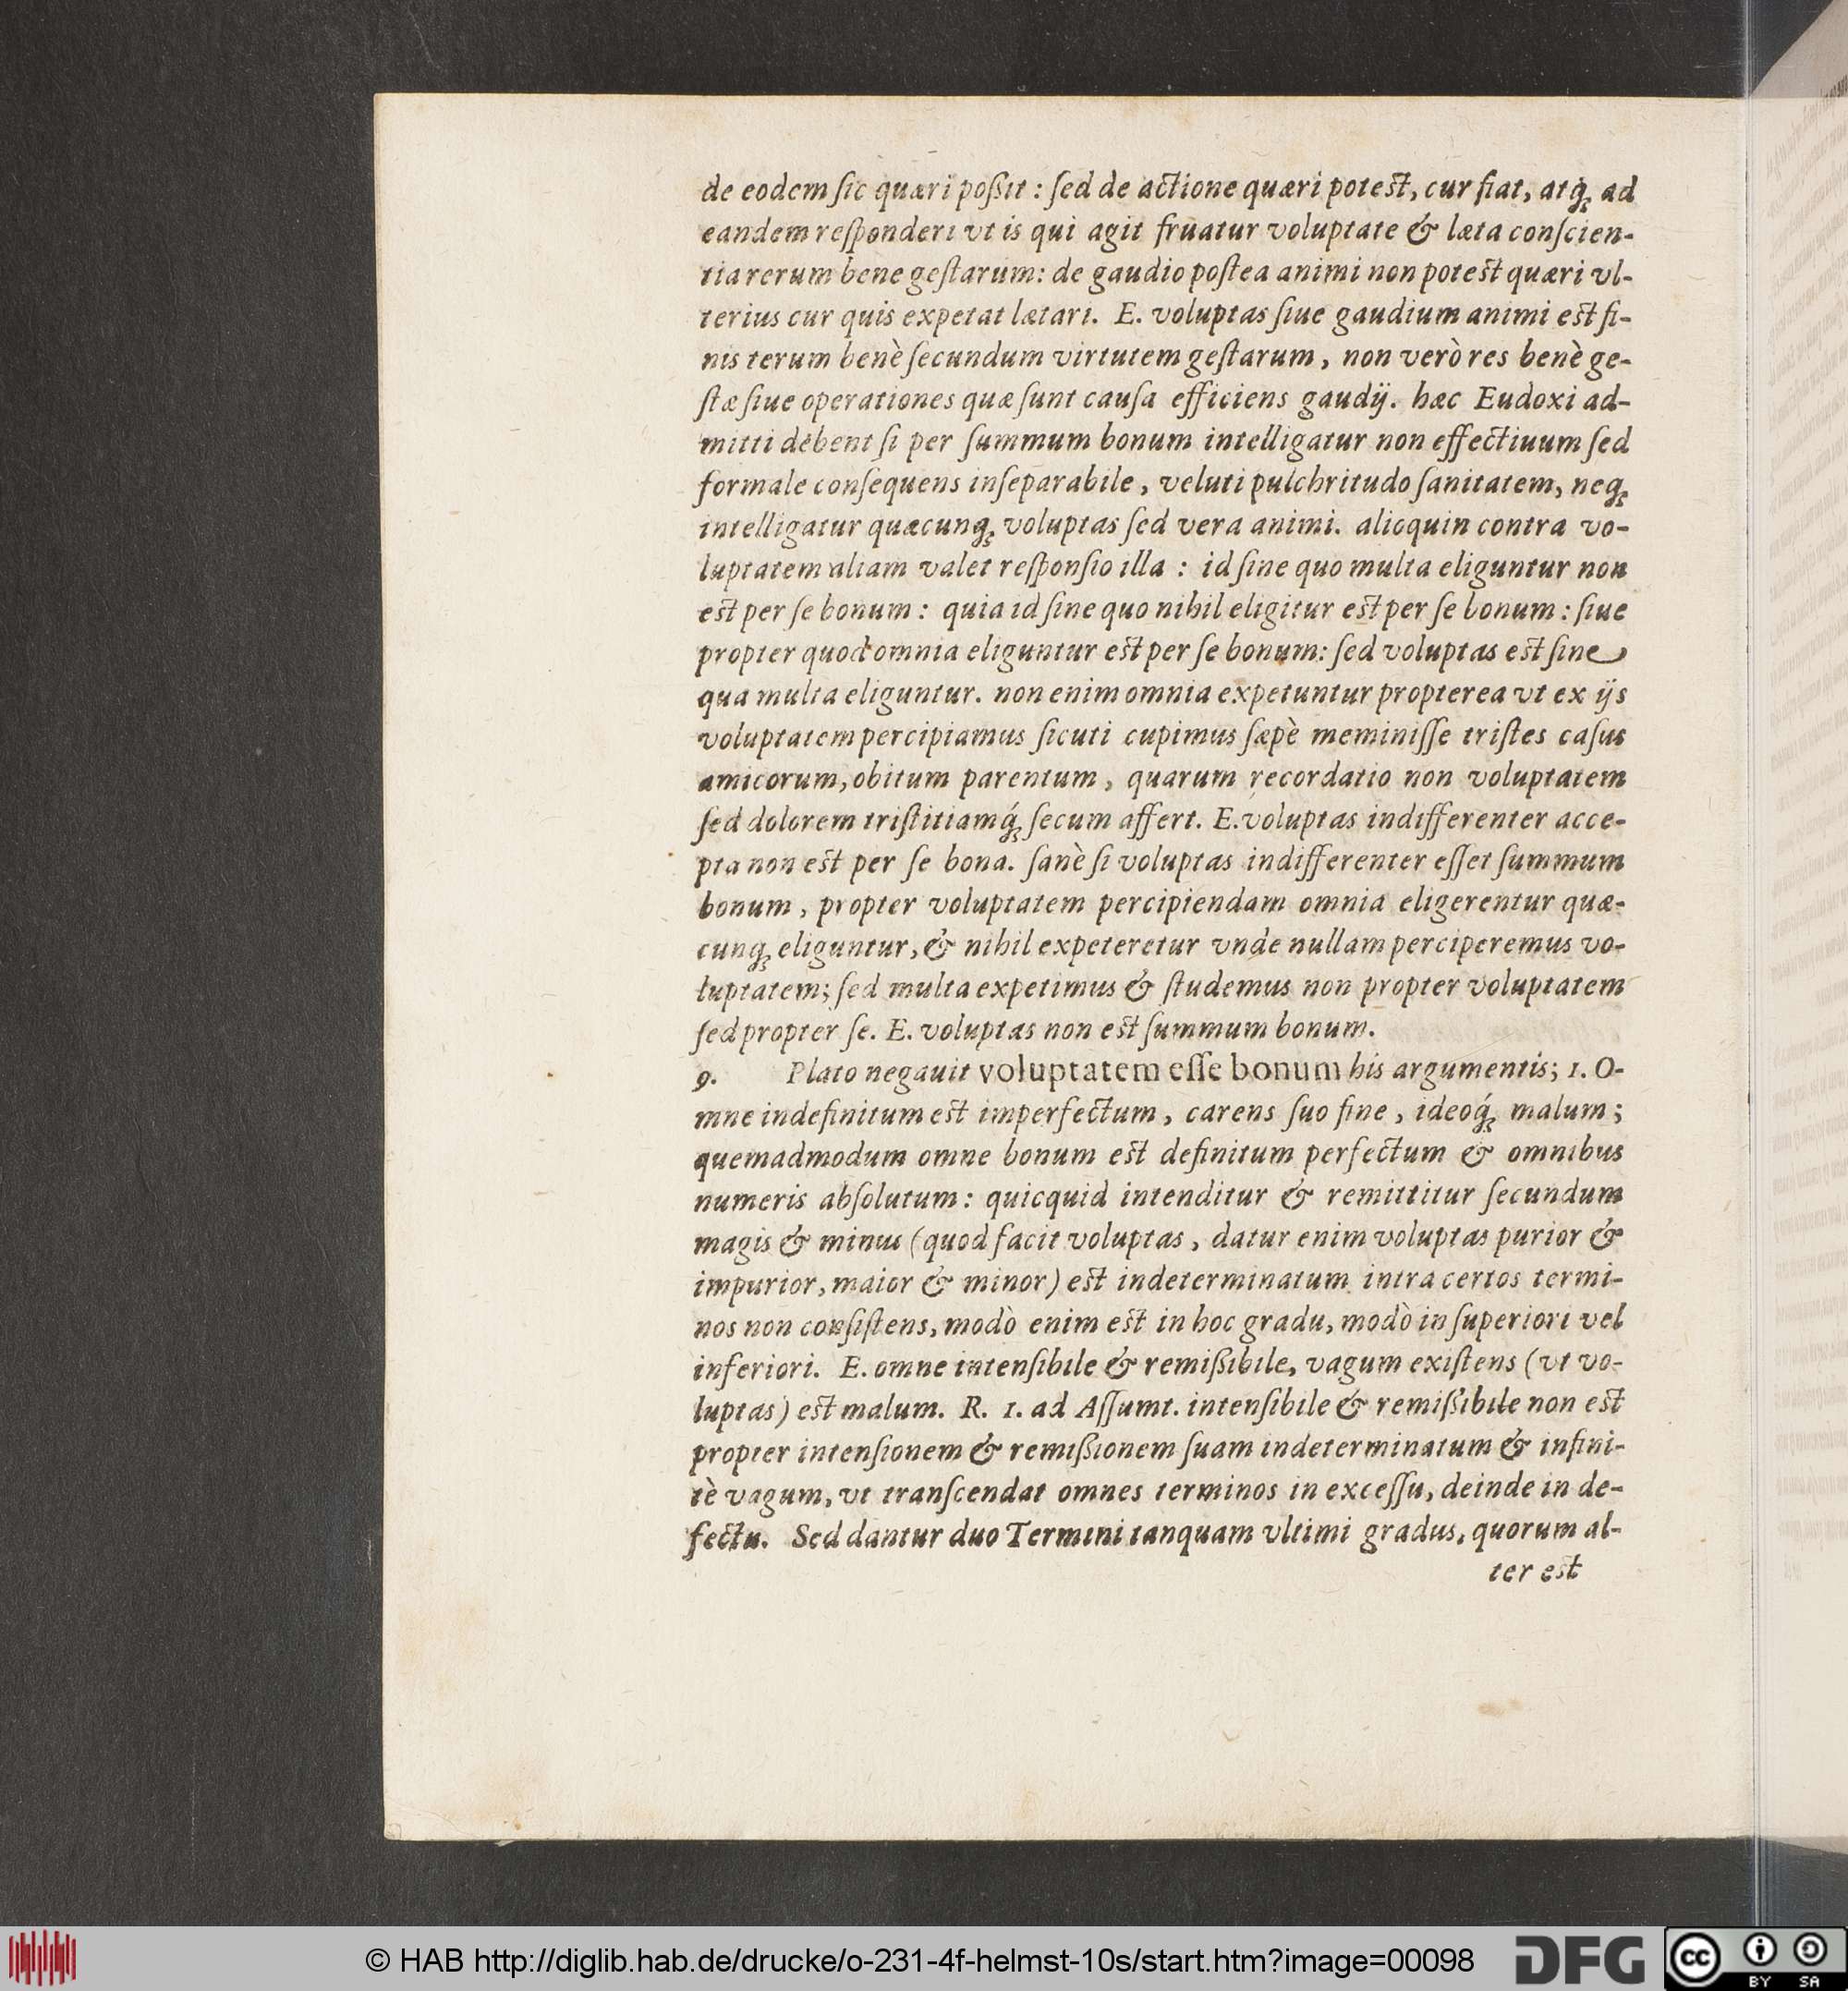 de eodem ſic quæri poßit : ſed de actione quæri poteſt, cur fiat, atq́; ad
eandem reſponderi vt is qui agit fruatur voluptate & læta conſcien-
tia rerum bene geſtarum: de gaudio poſtea animi non poteſt quæri vl-
terius cur quis expetat lætari. E. voluptas ſiue gaudium animi eſt fi-
nis terum benè ſecundum virtutem geſtarum, non verò res benè ge-
ſtæ ſiue operationes quæ ſunt cauſa efficiens gaudij. hæc Eudoxi ad-
mitti debent ſi per ſummum bonum intelligatur non effectiuum ſed
formale conſequens inſeparabile, veluti pulchritudo ſanitatem, neq;
intelligatur quæcunq; voluptas ſed vera animi. alioquin contra vo-
luptatem aliam valet reſponſio illa : id ſine quo multa eliguntur non
eſt per ſe bonum : quia id ſine quo nihil eligitur eſt per ſe bonum : ſiue
propter quod omnia eliguntur eſt per ſe bonum: ſed voluptas eſt ſine
qua multa eliguntur. non enim omnia expetuntur propterea vt ex ijs
voluptatem percipiamus ſicuti cupimus ſæpè meminiſſe triſtes caſus
amicorum, obitum parentum, quarum recordatio non voluptatem
ſed dolorem triſtitiamq́; ſecum affert. E. voluptas indifferenter acce-
pta non eſt per ſe bona. ſanè ſi voluptas indifferenter eſſet ſummum
bonum, propter voluptatem percipiendam omnia eligerentur quæ-
cunq; eliguntur, & nihil expeteretur vnde nullam perciperemus vo-
luptatem; ſed multa expetimus & ſtudemus non propter voluptatem
ſed propter ſe. E. voluptas non eſt ſummum bonum.
9. Plato negauit voluptatem eſſe bonum his argumentis; 1. O-
mne indefinitum eſt imperfectum, carens ſuo fine, ideoq́; malum;
quemadmodum omne bonum eſt definitum perfectum & omnibus
numeris abſolutum: quicquid intenditur & remittitur ſecundum
magis & minus (quod facit voluptas, datur enim voluptas purior &
impurior, maior & minor) eſt indeterminatum intra certos termi-
nos non conſiſtens, modò enim eſt in hoc gradu, modò in ſuperiori vel
inferiori. E. omne intenſibile & remißibile, vagum exiſtens (vt vo-
luptas) eſt malum. R. 1. ad Aſſumt. intenſibile & remißibile non eſt
propter intenſionem & remißionem ſuam indeterminatum & infini-
tè vagum, vt tranſcendat omnes terminos in exceſſu, deinde in de-
fectu. Sed dantur duo Termini tanquam vltimi gradus, quorum al-
ter eſt
© HAB http://diglib.hab.de/drucke/o-231-4f-helmst-10s/start.htm?image=00098
DFG
cc BY SA